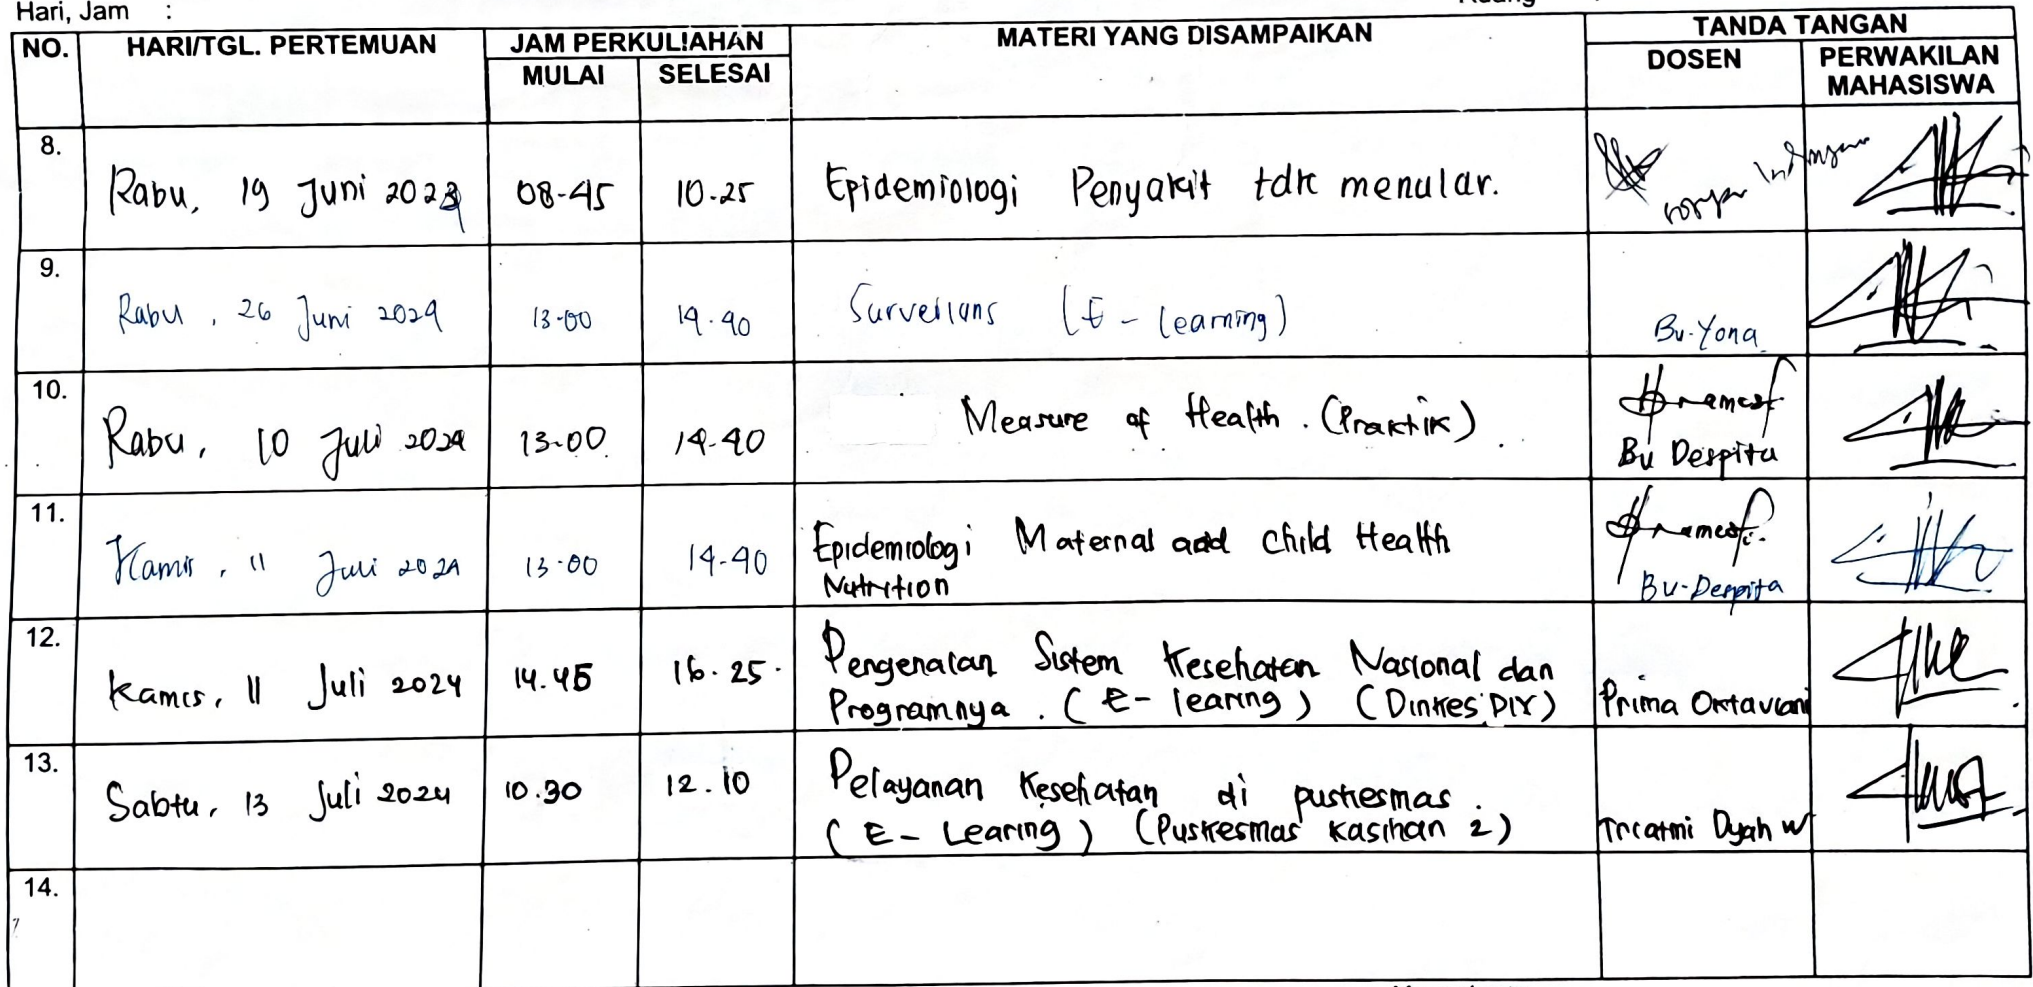 Hari, Jam :
NO. HARI/TGL. PERTEMUAN JAM PERKULIAHAN MATERI YANG DISAMPAIKAN TANDA TANGAN
MULAI SELESAI DOSEN PERWAKILAN
MAHASISWA
8. Rabu, 19 Juni 2024 08-45 10.25 Epidemiologi Penyakit tdk menular.
9. Rabu, 26 Juni 2024 13-00 14.40 Surveilans (E-learning) Bu-Yona
10. Rabu, 10 Juli 2024 13-00 14-40 Measure of Health. (Praktik). Bu Despita
11. Kamis, 11 Juli 2024 13-00 14-40 Epidemiologi Maternal and Child Health
Nutrition Bu-Despita
12. Kamis, 11 Juli 2024 14.45 16.25. Pengenalan Sistem Kesehatan Nasional dan
Programnya. (E-learing) (Dinkes DIY) Prima Oktaviani
13. Sabtu, 13 Juli 2024 10.30 12.10 Pelayanan Kesehatan di puskesmas.
(E-Learing) (Puskesmas Kasihan 2) Tricatmi Dyah W
14.